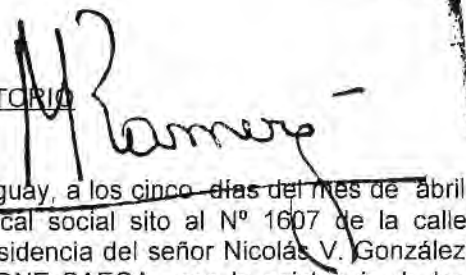 TORIO
MRamirez
guay, a los cinco días del mes de abril
cal social sito al Nº 1607 de la calle
sidencia del señor Nicolás V. González